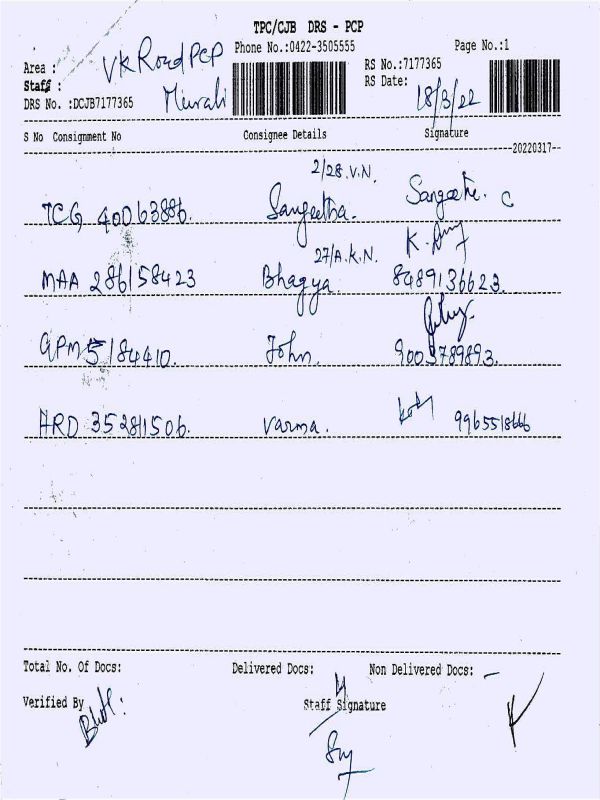 TPC/CJB DRS - PCP
Phone No.:0422-3505555 Page No.:1
Area : VK Road PCP
RS No.:7177365
Staff : Murali
RS Date: 18/3/22
DRS No. :DCJB7177365
S No Consignment No Consignee Details Signature
20220317
2/28.V.N.
TCG 40063886. Sangeetha. Sangeetha. C
27/A.K.N. K.
MAA 286158423 Bhagya. 8489136623.
5184410. John. 9003789893.
ARD 352811506. Varma. 9965518666
Total No. Of Docs: Delivered Docs: 4 Non Delivered Docs: -
Verified By
Staff Signature